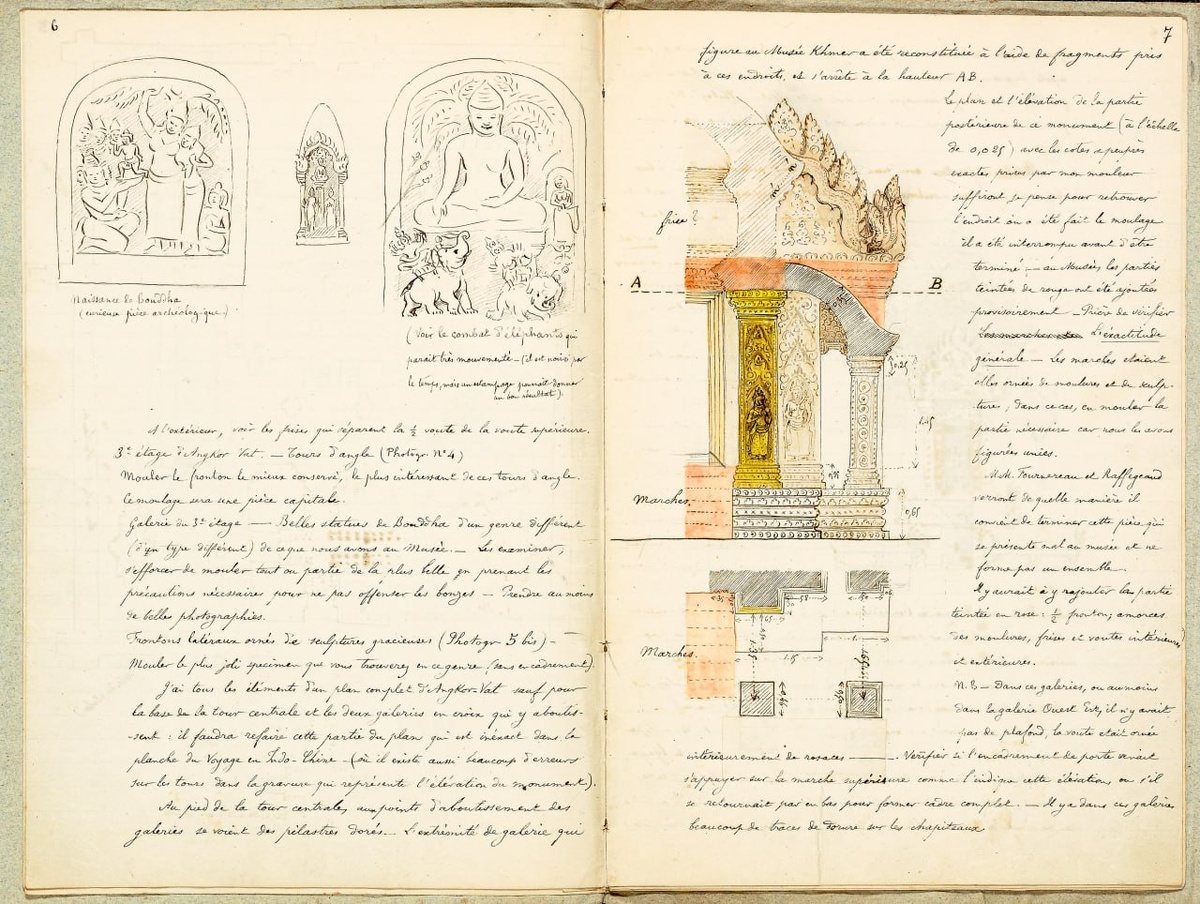 6
Naissance de Bouddha
(curieuse pièce archéologique)
(Voir le combat d'éléphants qui
parait très mouvementé — (il est noirci par
le temps, mais un estampage pourrait donner
un bon résultat).
A l'extérieur, voir les frises qui séparent la ½ voute de la voute supérieure.
3e étage d'Angkor Vat. — Tours d'angle (Photogr. N° 4)
Mouler le fronton le mieux conservé, le plus intéressant de ces tours d'angle.
Ce moulage sera une pièce capitale.
Galerie du 3e étage — Belles statues de Bouddha d'un genre différent
(d'un type différent) de ce que nous avons au Musée. — Les examiner,
s'efforcer de mouler tout ou partie de la plus belle en prenant les
précautions nécessaires pour ne pas offenser les bonzes — Prendre au moins
de belles photographies.
Frontons latéraux ornés de sculptures gracieuses (Photogr 5 bis) —
Mouler le plus joli specimen que vous trouverez en ce genre (sens encadrement).
J'ai tous les éléments d'un plan complet d'Angkor-Vat sauf pour
la base de la tour centrale et les deux galeries en croix qui y aboutis-
-sent : il faudra refaire cette partie du plan qui est inéxact dans la
planche du Voyage en Indo-Chine — (où il existe aussi beaucoup d'erreurs
sur les tours dans la gravure qui représente l'élévation du monument).
Au pied de la tour centrale, aux points d'aboutissement des
galeries se voient des pilastres dorés. — L'extrémité de galerie qui
7
figure au Musée Khmer a été reconstituée à l'aide de fragments pris
à ces endroits, et s'arrête à la hauteur AB.
le plan et l'élévation de la partie
postérieure de ce monument (à l'échelle
de 0,025) avec les cotes a peu près
exactes prises par mon mouleur
suffiront je pense pour retrouver
l'endroit où a été fait le moulage
il a été interrompu avant d'être
terminé — au Musée, les parties
teintées de rouge ont été ajoutées
provisoirement — Prière de vérifier
Les marches L'éxactitude
générale — Les marches étaient
elles ornées de moulures et de sculp-
ture, dans ce cas, en mouler la
partie nécessaire car nous les avons
figurées unies.
M.M. Fournereau et Raffegeaud
verront de quelle manière il
convient de terminer cette pièce qui
se présente mal au musée et ne
forme pas un ensemble.
Il y aurait à y rajouter la partie
teintée en rose : ½ fronton ; amorces
des moulures, frises et voutes intérieures
et extérieures.
N.B — Dans ces galeries, ou au moins
dans la galerie Ouest Est, il n'y avait
pas de plafond, la voute était ornée
intérieurement de rosaces — Vérifier si l'encadrement de porte venait
s'appuyer sur la marche supérieure comme l'indique cette élévation ou s'il
se retournait par en bas pour former cadre complet. — Il y a dans ces galeries
beaucoup de traces de dorure sur les chapiteaux
frise ?
A
B
0,25
1,45
0,35
Marches.
0,65
Marches.
1.15